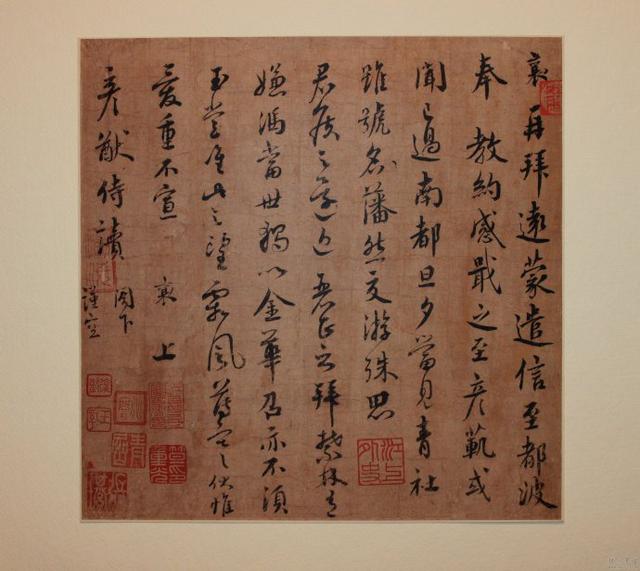 襄再拜遠蒙遣信至都波
奉教約感戢之至彥範或
聞已過南都旦夕當見青社
雖號名藩然交游殊思
君侯之還近麗正之拜禁林有
嫌馮當世獨以金華召亦不須
玉堂唯此之望霜風薄寒伏惟
愛重不宣 襄 上
彥猷侍讀 閤下
謹空